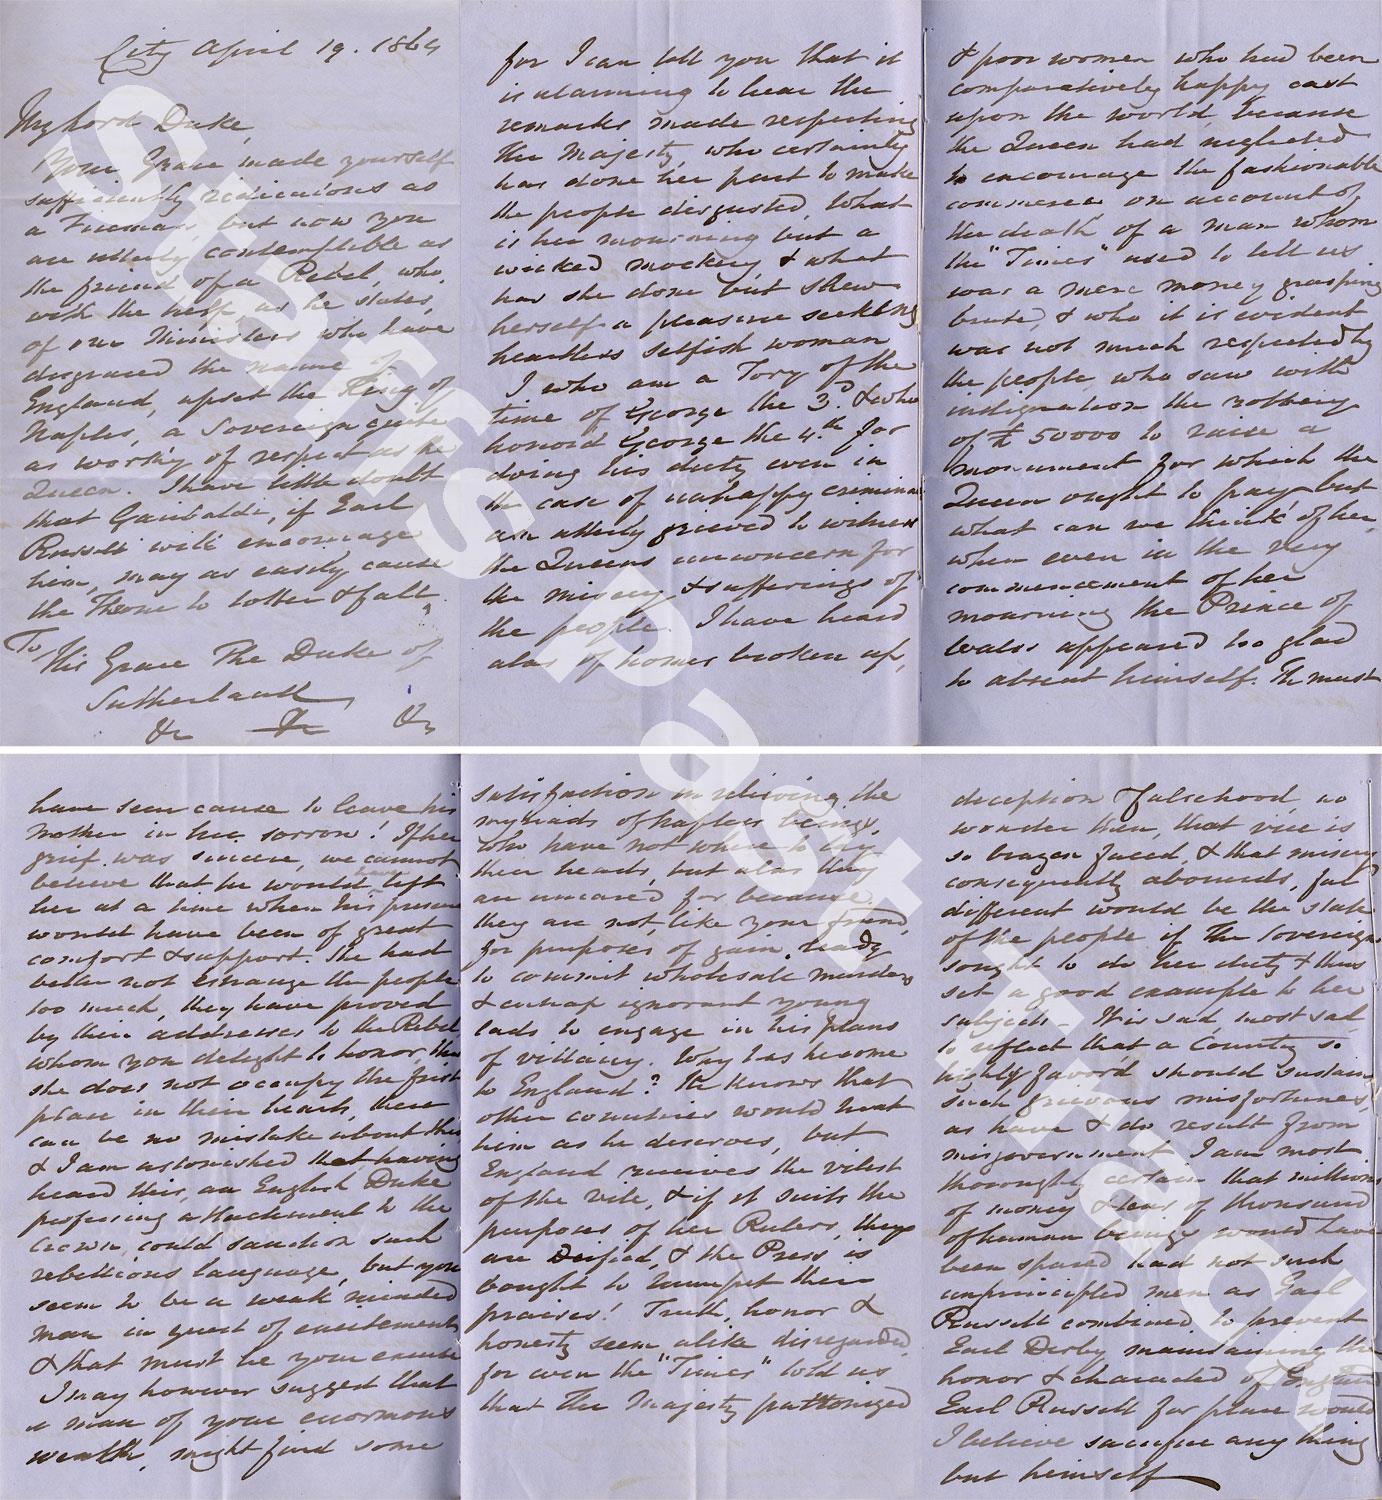 City April 19. 1864
My Lord Duke,
Your Grace made yourself
sufficiently ridiculous as
a Fireman, but now you
are utterly contemptible as
the friend of a Rebel, who,
with the help as he states,
of our Ministers who have
disgraced the name of
England, upset the King of
Naples, a Sovereign quite
as worthy of respect as the
Queen. I have little doubt
that Garibaldi, if Earl
Russell will encourage
him, may as easily cause
the Throne to totter & fall.
To
His Grace The Duke of
Sutherland
&c &c &c
for I can tell you that it
is alarming to hear the
remarks made respecting
Her Majesty, who certainly
has done her part to make
the people disgusted, What
is her mourning but a
wicked mockery, & what
has she done but shew
herself a pleasure seeking
heartless selfish woman
I who am a Tory of the
time of George the 3d. & who
honord George the 4th for
doing his duty even in
the case of unhappy criminals
am utterly grieved to witness
the Queens unconcern for
the misery & sufferings of
the people. I have heard
alas of homes broken up,
& poor women who had been
comparatively happy cast
upon the world, because
the Queen had neglected
to encourage the fashionable
commerce on account of
the death of a man whom
the "Times" used to tell us
was a mere money grasping
brute, & who it is evident
was not much respected by
the people, who saw with
indignation the robbery
of £50000 to raise a
monument for which the
Queen ought to pay - but
what can we think of her,
when even in the very
commencement of her
mourning the Prince of
Wales appeared too glad
to absent himself. He must
have seen cause to leave his
Mother in her sorrow! If her
grief was sincere, we cannot
believe that he would have left
her at a time when his presence
would have been of great
comfort & support. She had
better not estrange the people
too much, they have proved
by their addresses to the Rebel
whom you delight to honor, that
she does not occupy the first
place in their hearts, there
can be no mistake about this
& I am astonished that having
heard this, an English Duke
professing attachment to the
Crown, could sanction such
rebellious language, but you
seem to be a weak minded
man in quest of excitement
& that must be your excuse
I may however suggest that
a man of your enormous
wealth, might find some
satisfaction in relieving the
myriads of hapless beings,
who have not where to lay
their heads, but alas they
are uncared for because
they are not, like your friend,
for purposes of gain, ready
to commit wholesale murders
& entrap ignorant young
lads to engage in his plans
of villainy. Why has he come
to England? He knows that
other countries would treat
him as he deserves, but
England receives the vilest
of the vile, & if it suits the
purposes of her Rulers, they
are Deified, & the Press is
bought to trumpet their
praises! Truth, honor &
honesty seem alike disregarded,
for even the "Times" told us
that Her Majesty patronized
deception & falsehood, no
wonder then, that vice is
so brazen faced, & that misery
consequently abounds, far
different would be the state
of the people if the Sovereign
sought to do her duty & thus
set a good example to her
subjects - It is sad, most sad,
to reflect that a Country so
highly favord should sustain
such grievous misfortunes,
as have & do result from
misgovernment I am most
thoroughly certain that millions
of money & tens of thousand
of human beings would have
been spared had not such
unprincipled men as Earl
Russell combined to prevent
Earl Derby maintaining the
honor & character of England
Earl Russell for place would
I believe sacrifice any thing
but himself
Stuffs Past Track